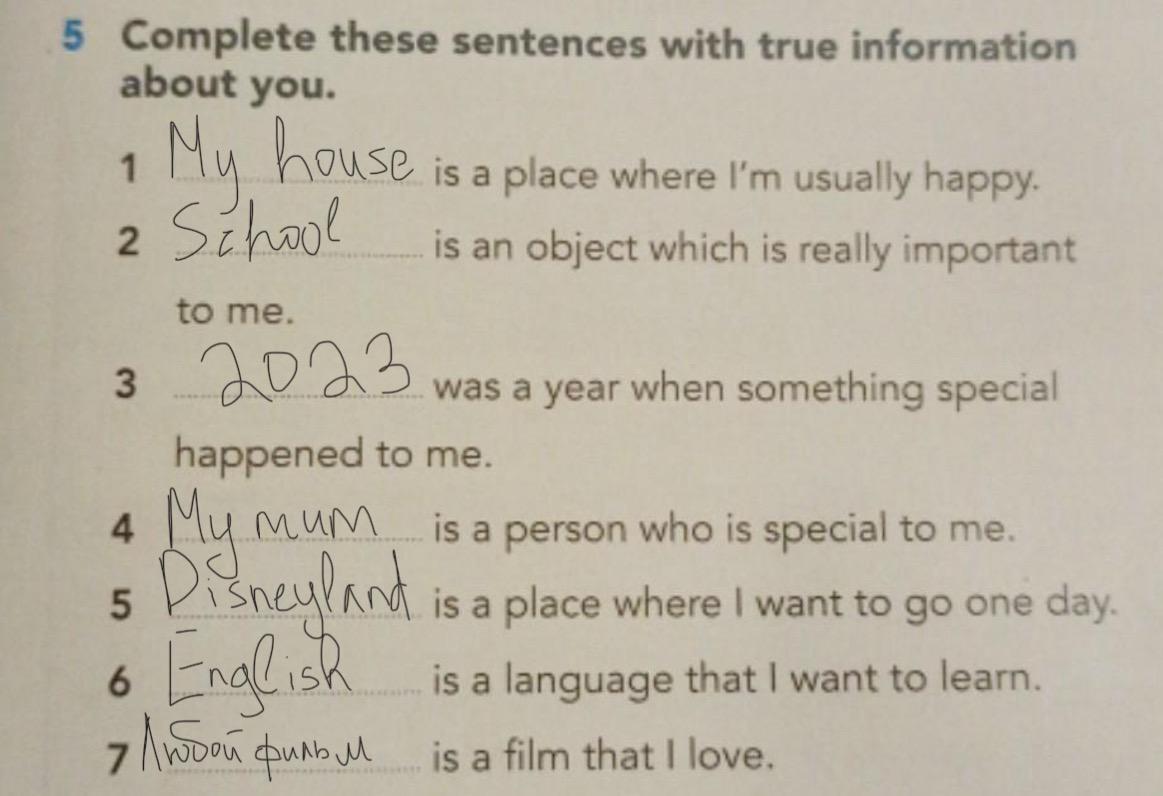 5 Complete these sentences with true information
about you.
1 My house is a place where I'm usually happy.
2 School is an object which is really important
to me.
3 2023 was a year when something special
happened to me.
4 My mum is a person who is special to me.
5 Disneyland is a place where I want to go one day.
6 English is a language that I want to learn.
7 Любой фильм is a film that I love.